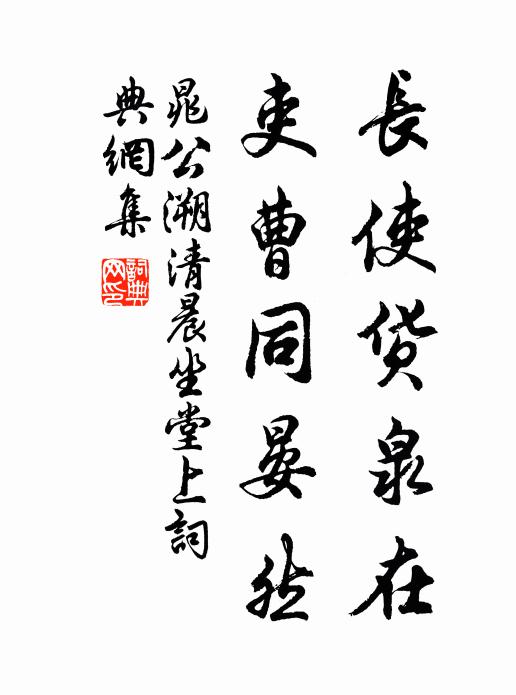 長使貨泉在
吏曹同晏然
晁公溯清晨坐堂上詞
典網集
詞典
网印